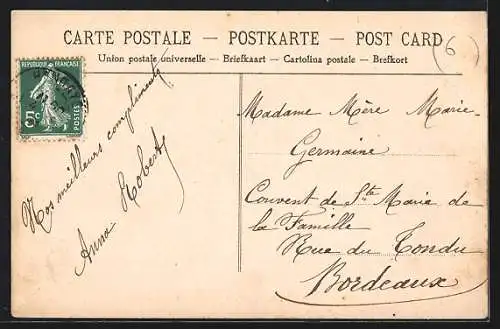 CARTE POSTALE — POSTKARTE — POST CARD
Union postale universelle — Briefkaart — Cartolina postale — Brefkort
6
REPUBLIQUE FRANÇAISE
5c
POSTES
Nos meilleurs compliments
Anna Robert
Madame Mère Marie-
Germaine
Couvent de Ste Marie de
la Famille
Rue du Tondu
Bordeaux